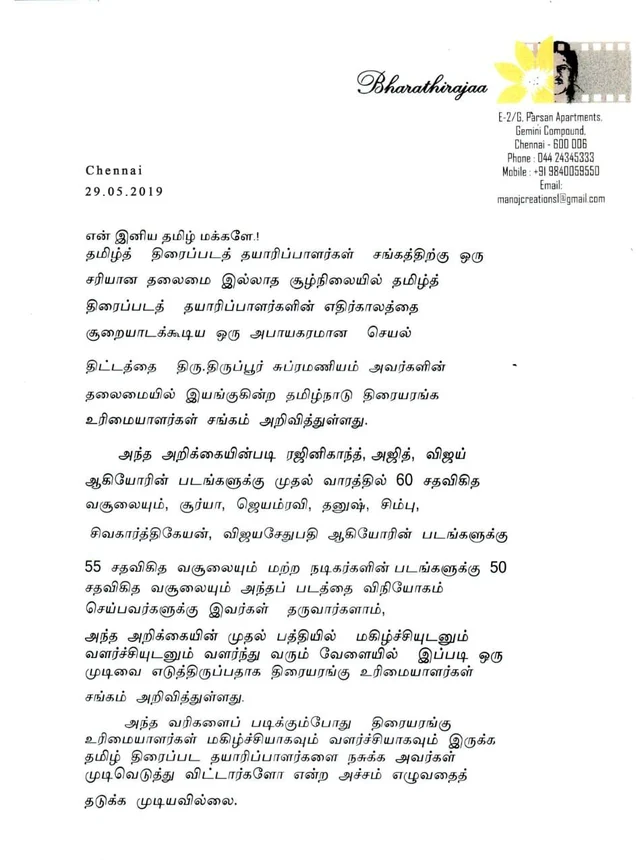 Bharathirajaa
E-2/G, Parsan Apartments,
Gemini Compound,
Chennai - 600 006
Phone : 044 24345333
Mobile : +91 9840059550
Email:
manojcreations1@gmail.com
Chennai
29.05.2019
என் இனிய தமிழ் மக்களே.!
தமிழ்த் திரைப்படத் தயாரிப்பாளர்கள் சங்கத்திற்கு ஒரு
சரியான தலைமை இல்லாத சூழ்நிலையில் தமிழ்த்
திரைப்படத் தயாரிப்பாளர்களின் எதிர்காலத்தை
சூறையாடக்கூடிய ஒரு அபாயகரமான செயல்
திட்டத்தை திரு.திருப்பூர் சுப்ரமணியம் அவர்களின்
தலைமையில் இயங்குகின்ற தமிழ்நாடு திரையரங்க
உரிமையாளர்கள் சங்கம் அறிவித்துள்ளது.
அந்த அறிக்கையின்படி ரஜினிகாந்த், அஜித், விஜய்
ஆகியோரின் படங்களுக்கு முதல் வாரத்தில் 60 சதவிகித
வசூலையும், சூர்யா, ஜெயம்ரவி, தனுஷ், சிம்பு,
சிவகார்த்திகேயன், விஜயசேதுபதி ஆகியோரின் படங்களுக்கு
55 சதவிகித வசூலையும் மற்ற நடிகர்களின் படங்களுக்கு 50
சதவிகித வசூலையும் அந்தப் படத்தை விநியோகம்
செய்பவர்களுக்கு இவர்கள் தருவார்களாம்,
அந்த அறிக்கையின் முதல் பத்தியில் மகிழ்ச்சியுடனும்
வளர்ச்சியுடனும் வளர்ந்து வரும் வேளையில் இப்படி ஒரு
முடிவை எடுத்திருப்பதாக திரையரங்கு உரிமையாளர்கள்
சங்கம் அறிவித்துள்ளது.
அந்த வரிகளைப் படிக்கும்போது திரையரங்கு
உரிமையாளர்கள் மகிழ்ச்சியாகவும் வளர்ச்சியாகவும் இருக்க
தமிழ் திரைப்பட தயாரிப்பாளர்களை நசுக்க அவர்கள்
முடிவெடுத்து விட்டார்களோ என்ற அச்சம் எழுவதைத்
தடுக்க முடியவில்லை.